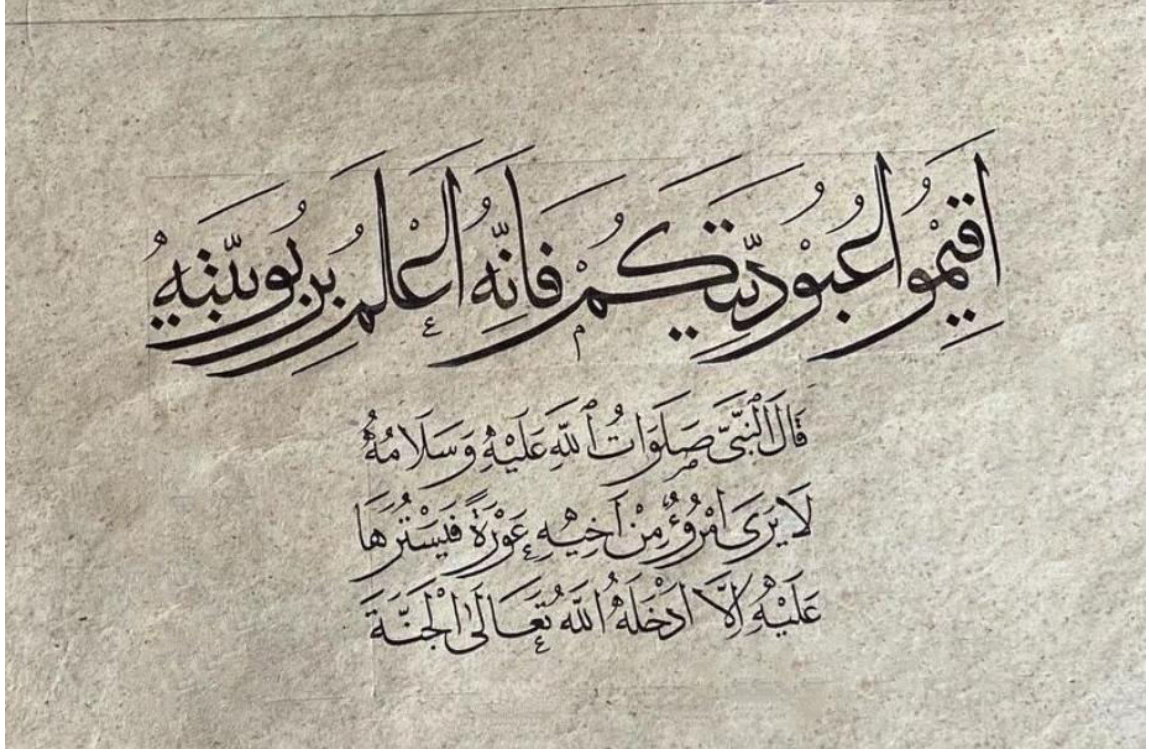 اَقِيْمُوا عُبُوْدِيَّتَكُمْ فَاِنَّهُ اَعْلَمُ بِرُبُوبِيَّتِهِ
قَالَ النَّبِىُّ صَلَوَاتُ ٱللّٰهِ عَلَيْهِ وَسَلَامُهُ
لَا يَرَى امْرُؤٌ مِنْ اَخِيْهِ عَوْرَةً فَيَسْتُرُهَا
عَلَيْهِ اِلَّا اَدْخَلَهُ اللّٰهُ تَعَالَى الْجَنَّةَ